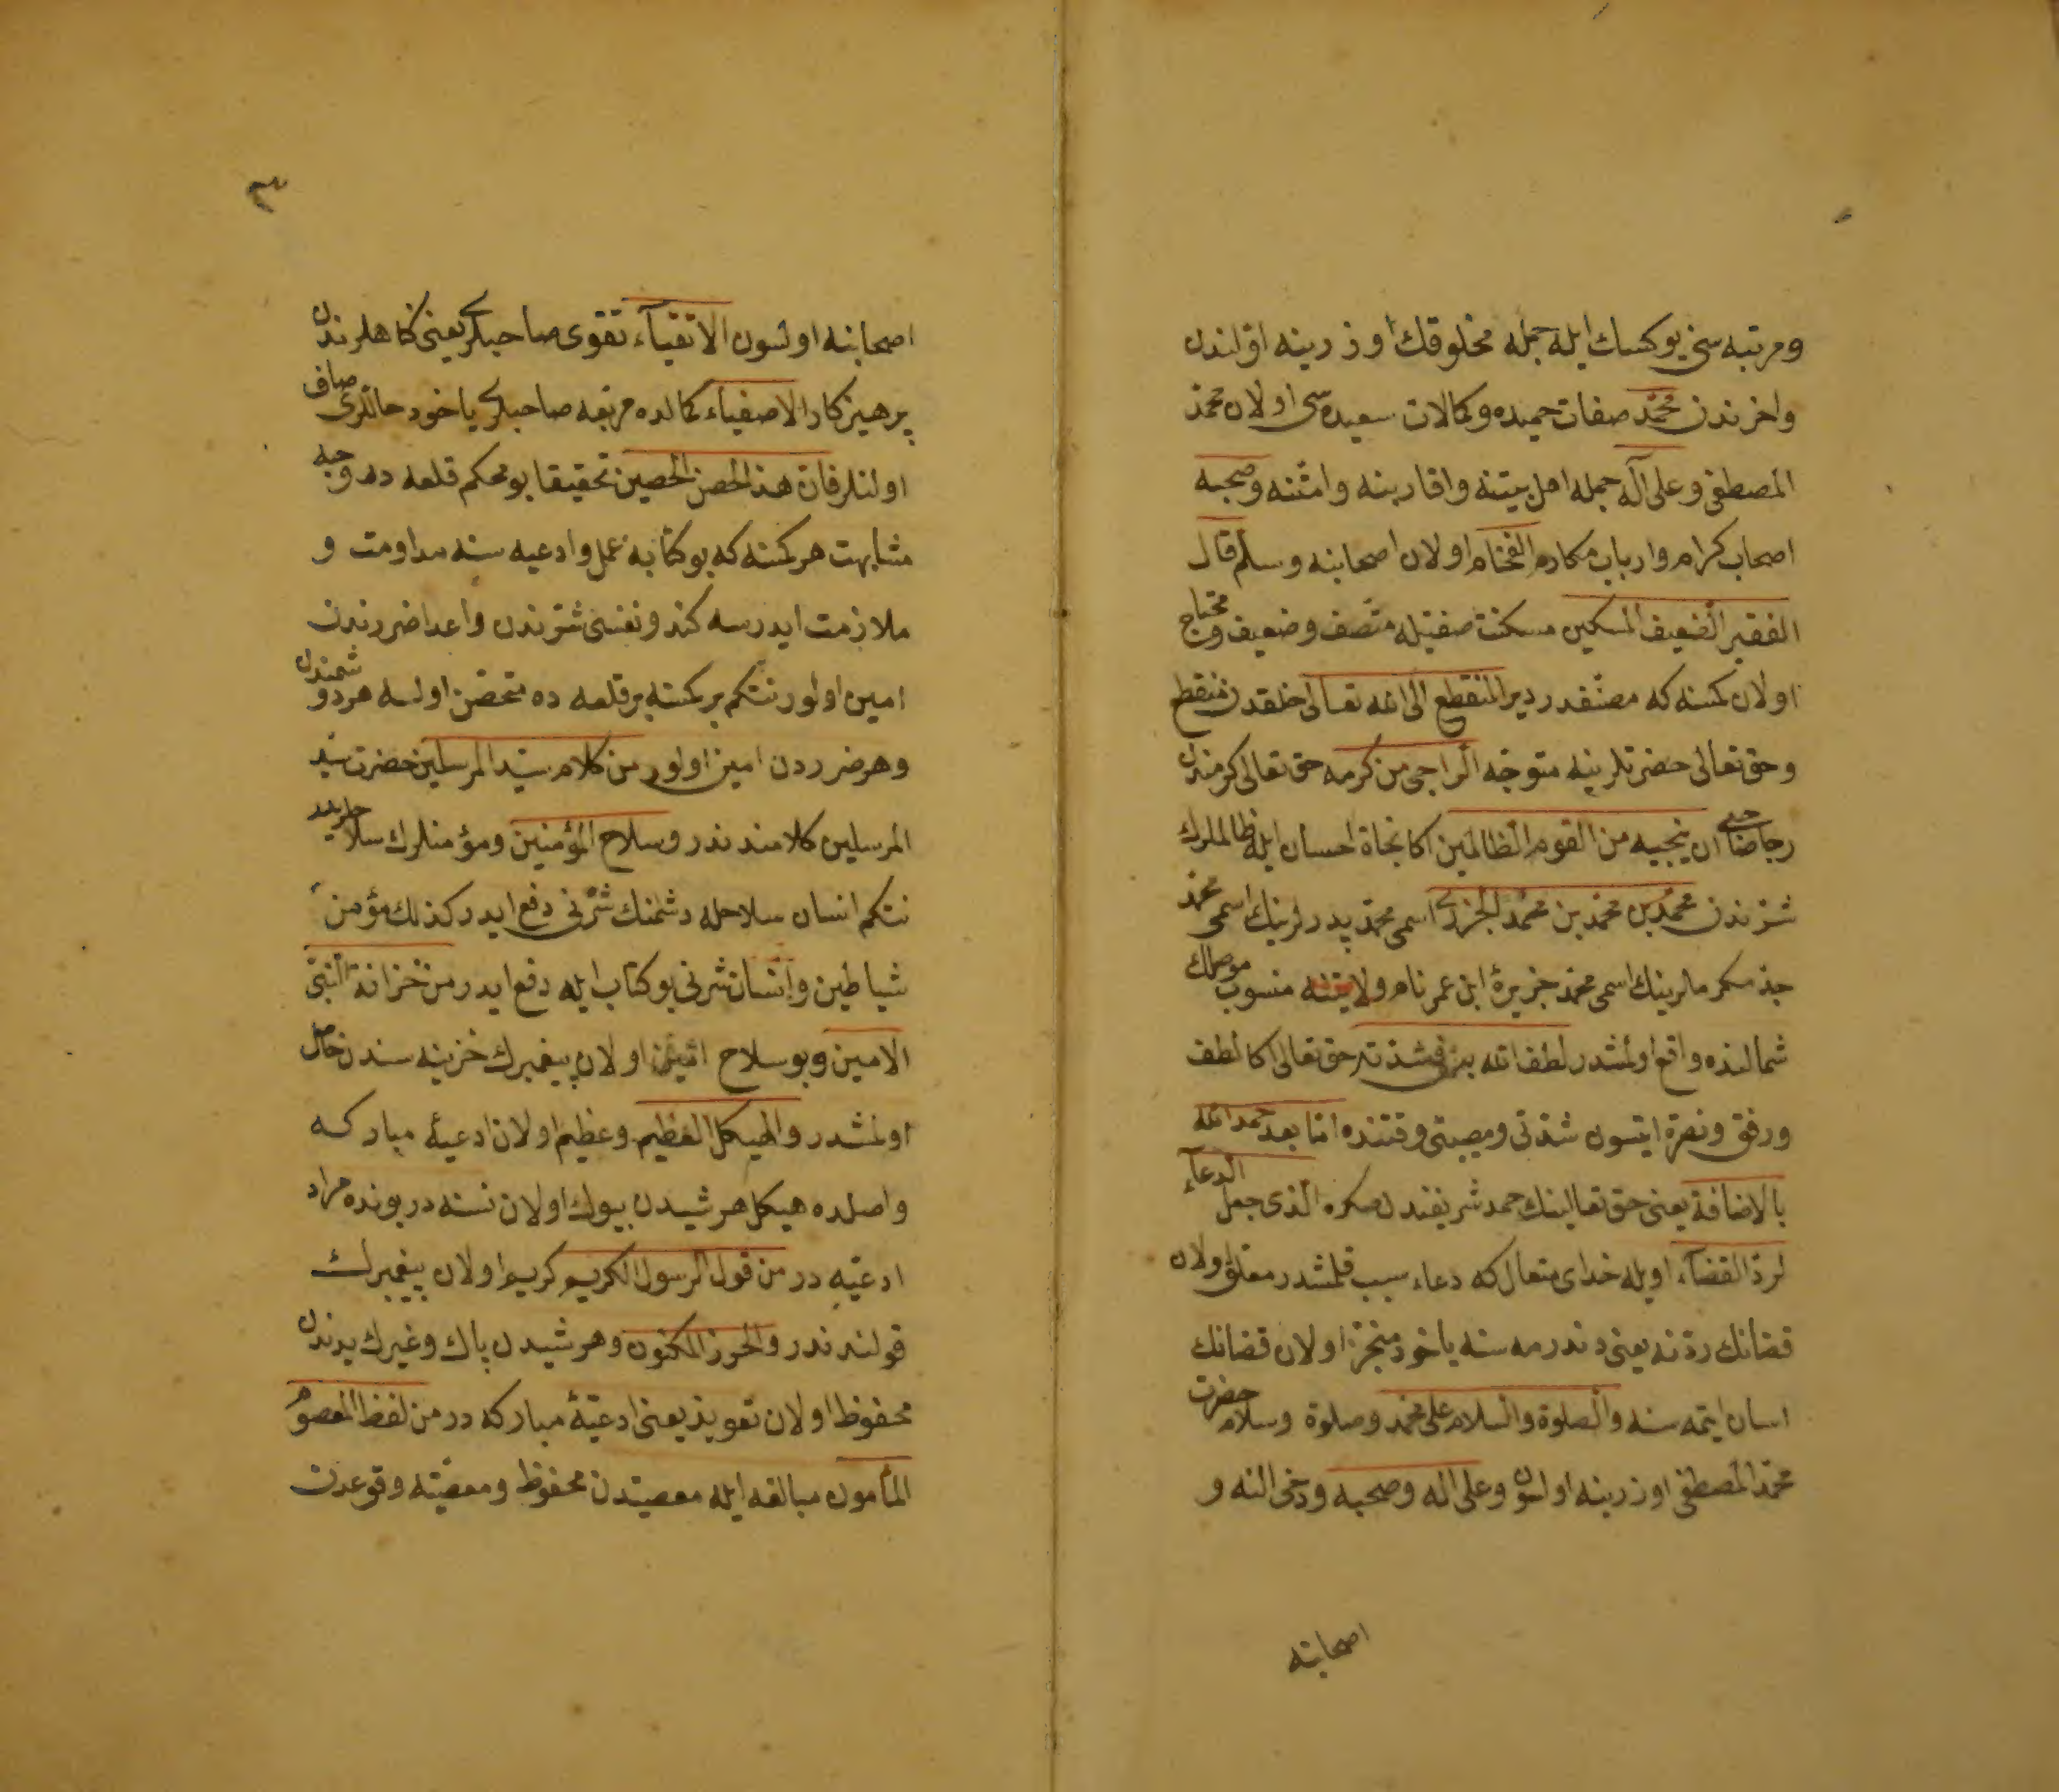 ومرتبه سی یوکسك ایله جمله مخلوقك اوزرینه اولندن
واخرندن محمد صفات حمیده وکمالات سعیده سی اولان محمد
المصطفی وعلی آله جمله اهل بیتنه واقاربنه وامتنه وصحبه
اصحاب کرام وارباب مکارم الفخام اولان اصحابنه وسلم قال
الفقیر الضعیف المسکین مسکنت صفتیله متصف وضعیف ومحتاج
اولان کمسنه که مصنفدر دیر المنقطع الی الله تعالی خلقدن منقطع
وحق تعالی حضرتلرینه متوجه الراجی من کرمه حق تعالی کرمندن
رجا ان ینجیه من القوم الظالمین اکا نجاة احسان ایله ظالملرك
شرندن محمد بن محمد بن محمد الجزری اسمی محمد پدرلرینك اسمی محمد
جد مکرملرینك اسمی محمد جزیرۀ ابن عمر نام ولایتنه منسوب موصلك
شمالنده واقع اولمشدر لطف الله به فی شدته حق تعالی اکا لطف
ورفق ونصرة ایتسون شدتی ومصیبتی وقتنده اما بعد حمد الله
بالاضافة یعنی حق تعالینك حمد شریفندن صکره الذی جعل الدعآء
لرد القضآء اویله خدای متعال که دعاء سبب قلمشدر معلق اولان
قضانك ردنه یعنی دندرمه سنه یاخود منجز اولان قضانك
اسان ایتمه سنه والصلوة والسلام علی محمد وصلوة وسلام حضرت
محمد المصطفی اوزرینه اولسون وعلی اله وصحبه ودخی النه و
اصحابنه
٣
اصحابنه اولسون الاتقیآء تقوی صاحبلری یعنی کناهلرندن
پرهیزکار الاصفیاء کمالده مرتبه صاحبلری یاخود حاللری صاف
اولنلر فان هذا الحصن الحصین تحقیقا بو محکم قلعه ده وجه
مشابهت هر کمسنه که بو کتابه عمل وادعیه سنه مداومت و
ملازمت ایدرسه کندو نفسی شرندن واعدا ضررندن
امین اولور نتکم بر کمسنه بر قلعه ده متحصن اولسه هر دوشمندن
وهر ضرردن امین اولور من کلام سید المرسلین حضرت سید
المرسلین کلامندندر وسلاح المؤمنین ومؤمنلرك سلاحلریدر
نتکم انسان سلاحله دشمنك شرنی دفع ایدر کذلك مؤمن
شیاطین وانسان شرنی بو کتاب ایله دفع ایدر من خزانة النبی
الامین وبو سلاح امین اولان پیغمبرك خزینه سندن حاصل
اولمشدر والهیکل العظیم وعظیم اولان ادعیۀ مبارکه
واصلده هیکل هر شیدن بیوك اولان نسنه در بونده مراد
ادعیه در من قول الرسول الکریم کریم اولان پیغمبرك
قولندندر والحرز المکنون وهر شیدن پاك وغیرك یدندن
محفوظ اولان تعویذ یعنی ادعیۀ مبارکه در من لفظ المعصوم
المأمون مبالغه ایله معصیتدن محفوظ ومعصیته وقوعدن